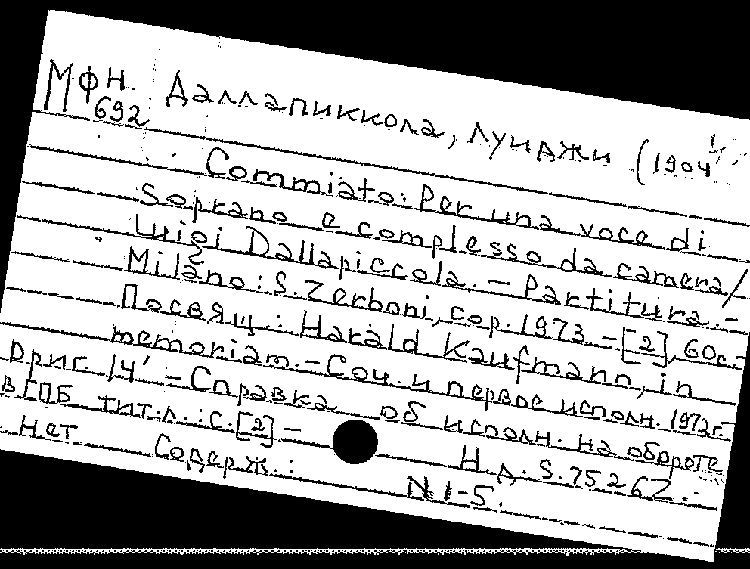 МФН. Даллапиккола, Луиджи (1904
692
Commiato: Per una voce di
soprano e complesso da camera/
Luigi Dallapiccola. – Partitura. –
Milano: S. Zerboni, cop. 1973. – [2], 60с. –
Посвящ.: Harald Kaufmann, in
memoriam. – Соч. и первое исполн. 1972г.
Ориг. 14' – Справка об исполн. на обороте
в ГПБ тит. л.: с. [2] – Н.д. S. 7526 Z. –
Нет Содерж.: N 1-5.